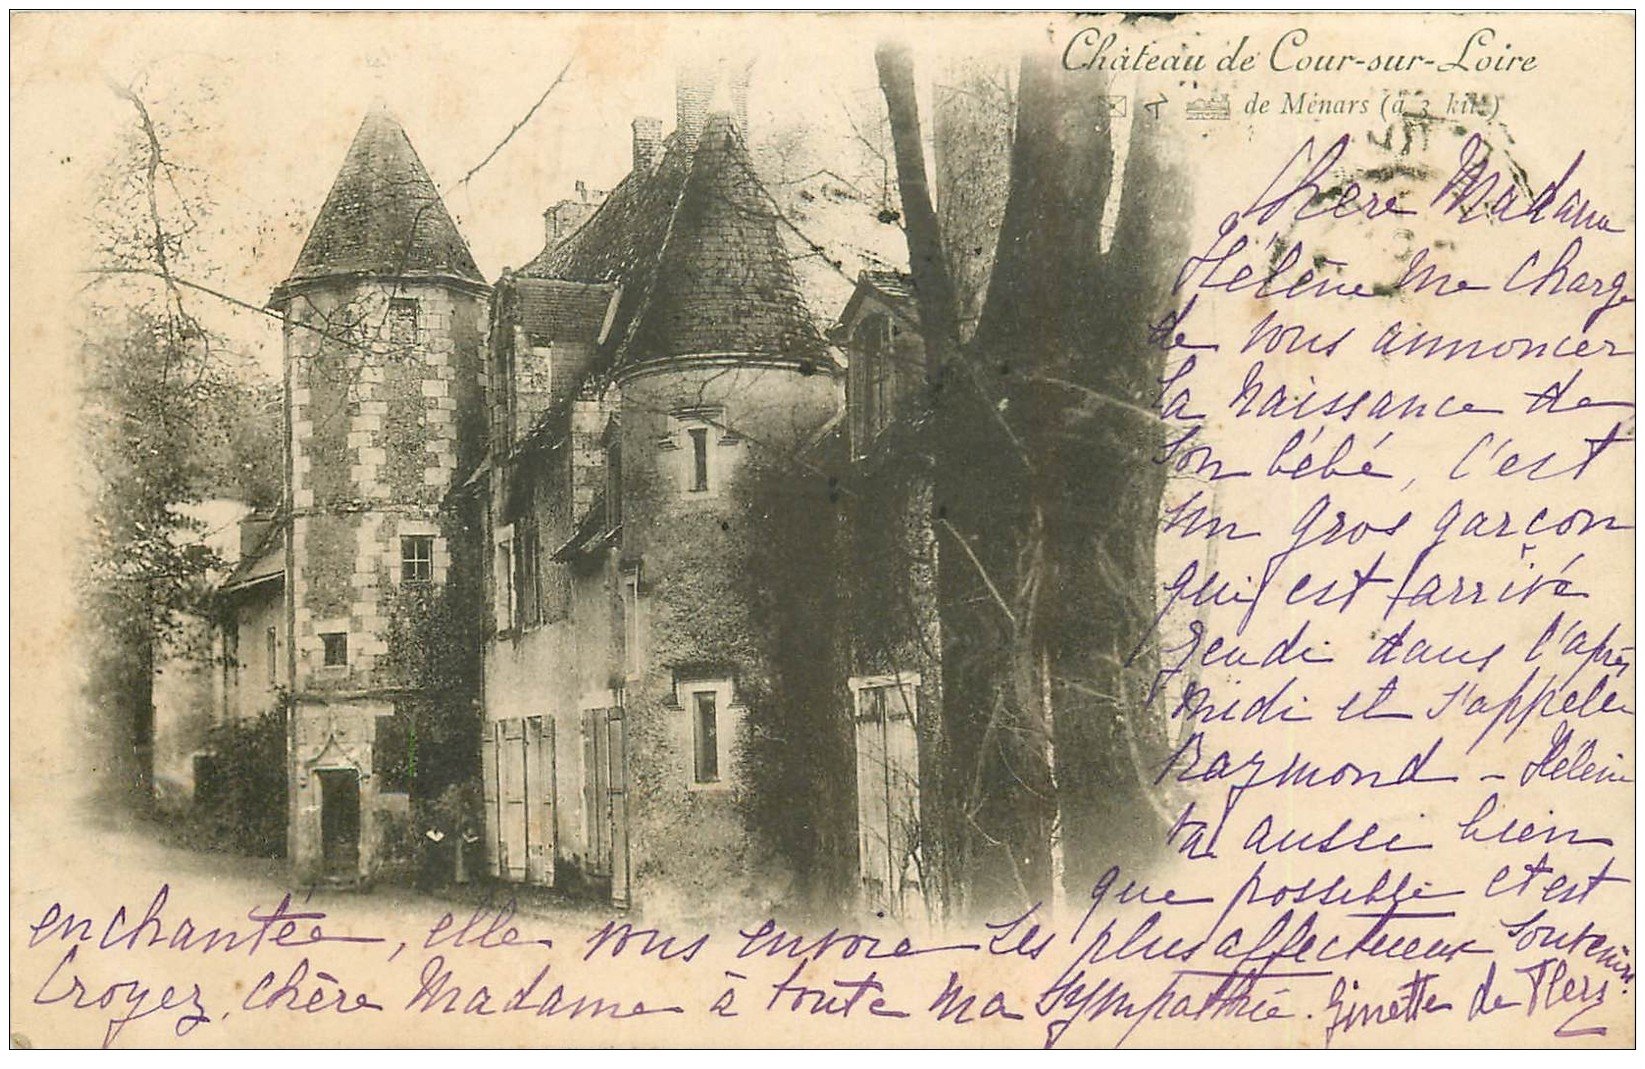 Château de Cour-sur-Loire
de Ménars (à 3 kil.)
Chère Madame
Hélène me charge
de vous annoncer
la naissance de
son bébé, c'est
un gros garçon
qui est arrivé
Jeudi dans l'après
midi et s'appelle
Raymond – Hélène
va aussi bien
que possible et est
enchantée, elle vous envoie ses plus affectueux souvenirs.
Croyez, chère Madame à toute ma sympathie. Ginette de